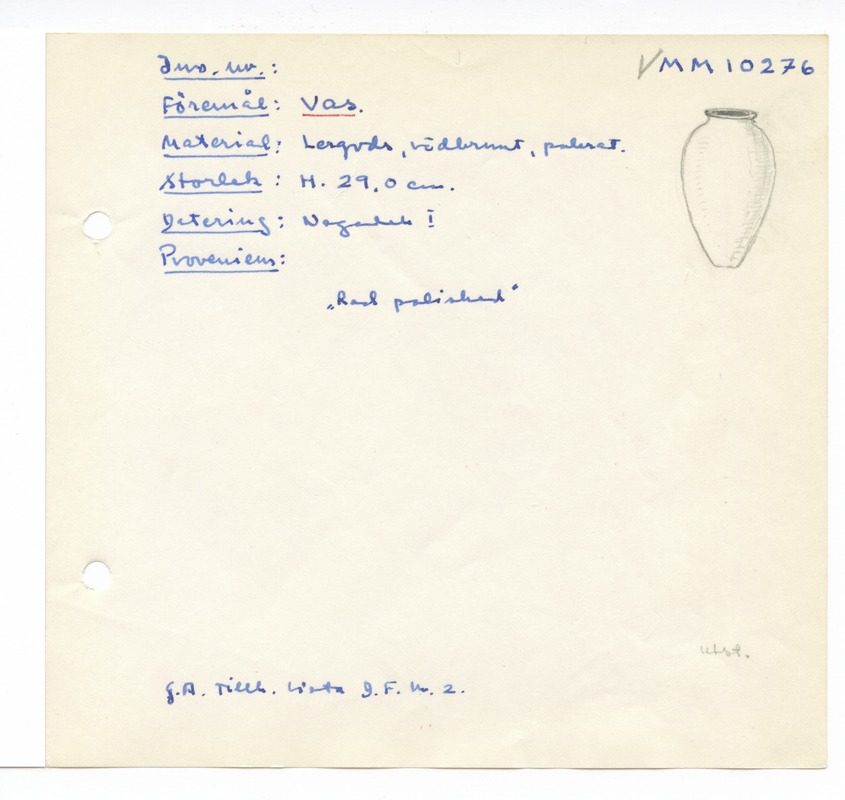 Inv. nr.: MM 10276
Föremål: Vas.
Material: Lergods, rödbrunt, polerat.
Storlek: H. 29,0 cm.
Datering: Nagadeh I
Proveniens:
„Red polished"
G.A. Tillh. Lista D.F. Nr. 2.
utst.